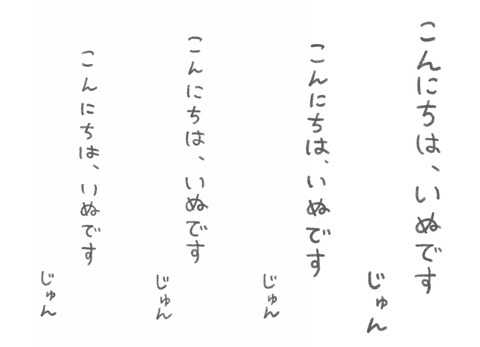 こんにちは、いぬです
じゅん
こんにちは、いぬです
じゅん
こんにちは、いぬです
じゅん
こんにちは、いぬです
じゅん